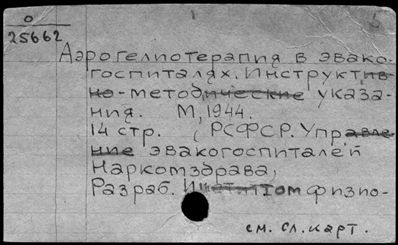 О
25662
Аэрогелиотерапия в эвако-
госпиталях. Инструктив-
но-методические указа-
ния. М, 1944.
14 стр. (РСФСР. Управле-
ние эвакогоспиталей
Наркомздрава,
Разраб. физио-
см. сл. карт.